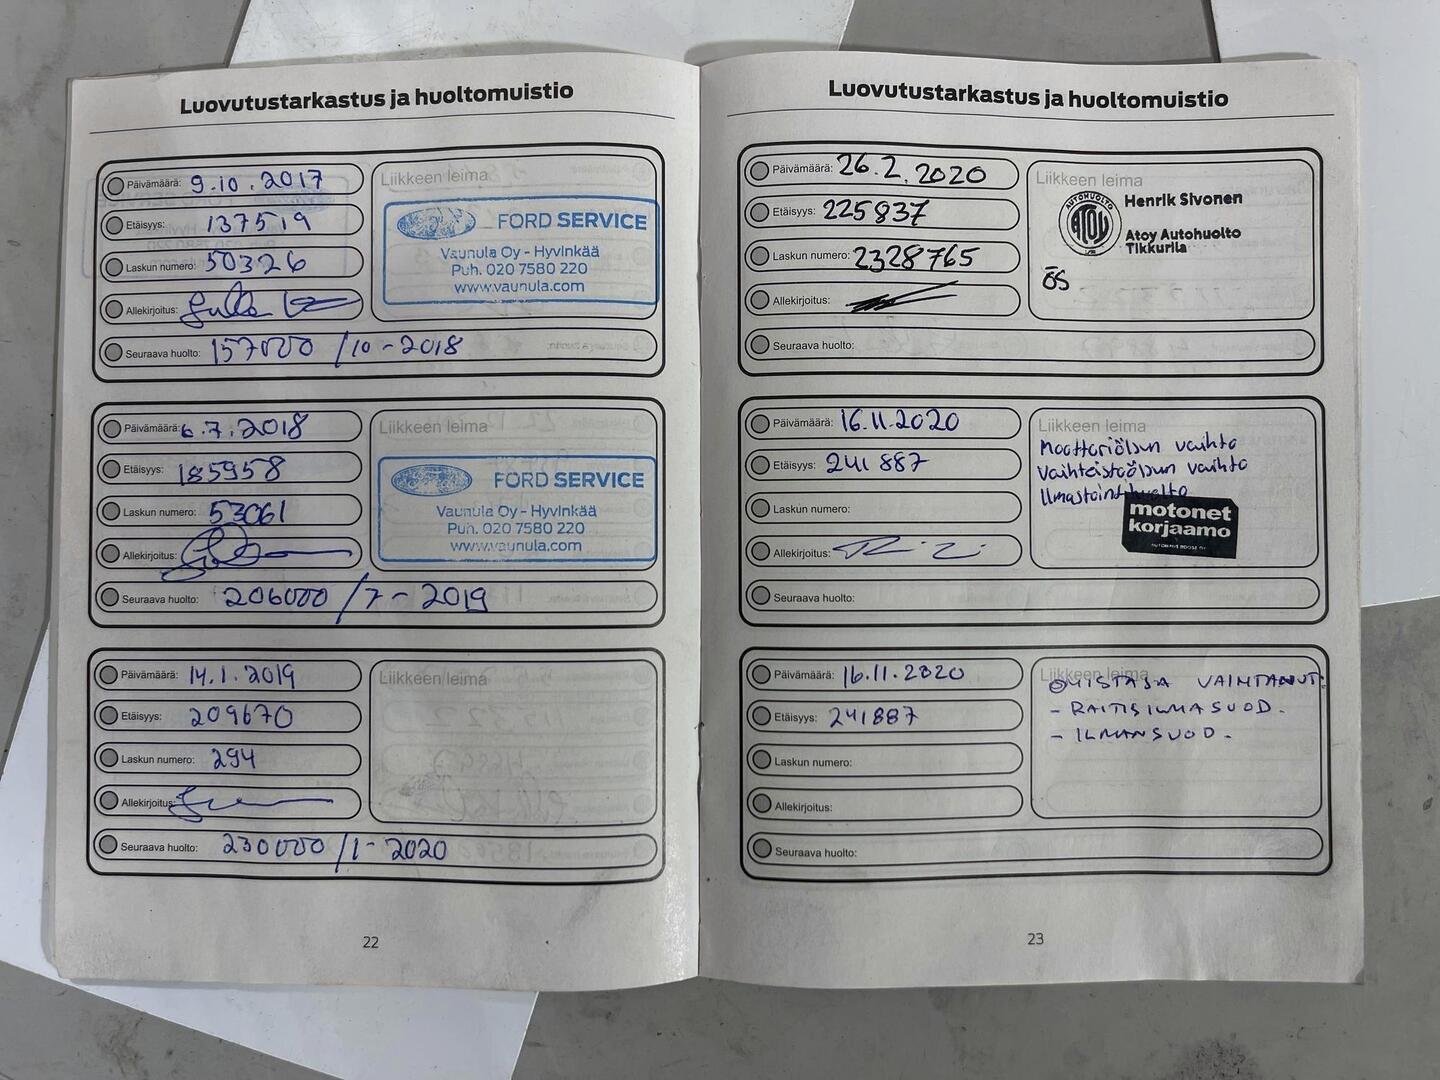 Luovutustarkastus ja huoltomuistio
Päivämäärä: 9.10.2017
Etäisyys: 137519
Laskun numero: 50326
Allekirjoitus:
Seuraava huolto: 157000 /10-2018
Liikkeen leima
FORD SERVICE
Vaunula Oy - Hyvinkää
Puh. 020 7580 220
www.vaunula.com
Päivämäärä: 6.7.2018
Etäisyys: 185958
Laskun numero: 53061
Allekirjoitus:
Seuraava huolto: 206000 /7-2019
Liikkeen leima
FORD SERVICE
Vaunula Oy - Hyvinkää
Puh. 020 7580 220
www.vaunula.com
Päivämäärä: 14.1.2019
Etäisyys: 209670
Laskun numero: 294
Allekirjoitus:
Seuraava huolto: 230000 /1-2020
Liikkeen leima
22
Luovutustarkastus ja huoltomuistio
Päivämäärä: 26.2.2020
Etäisyys: 225837
Laskun numero: 2328765
Allekirjoitus:
Seuraava huolto:
Liikkeen leima
AUTOHUOLTO
ATOY
Henrik Sivonen
Atoy Autohuolto
Tikkurila
ÖS
Päivämäärä: 16.11.2020
Etäisyys: 241 887
Laskun numero:
Allekirjoitus:
Seuraava huolto:
Liikkeen leima
Moottoriöljyn vaihto
Vaihteistoöljyn vaihto
Ilmastointihuolto
motonet
korjaamo
Päivämäärä: 16.11.2020
Etäisyys: 241887
Laskun numero:
Allekirjoitus:
Seuraava huolto:
Liikkeen leima
OMISTAJA VAIHTANUT:
- RAITISILMASUOD.
- ILMANSUOD.
23